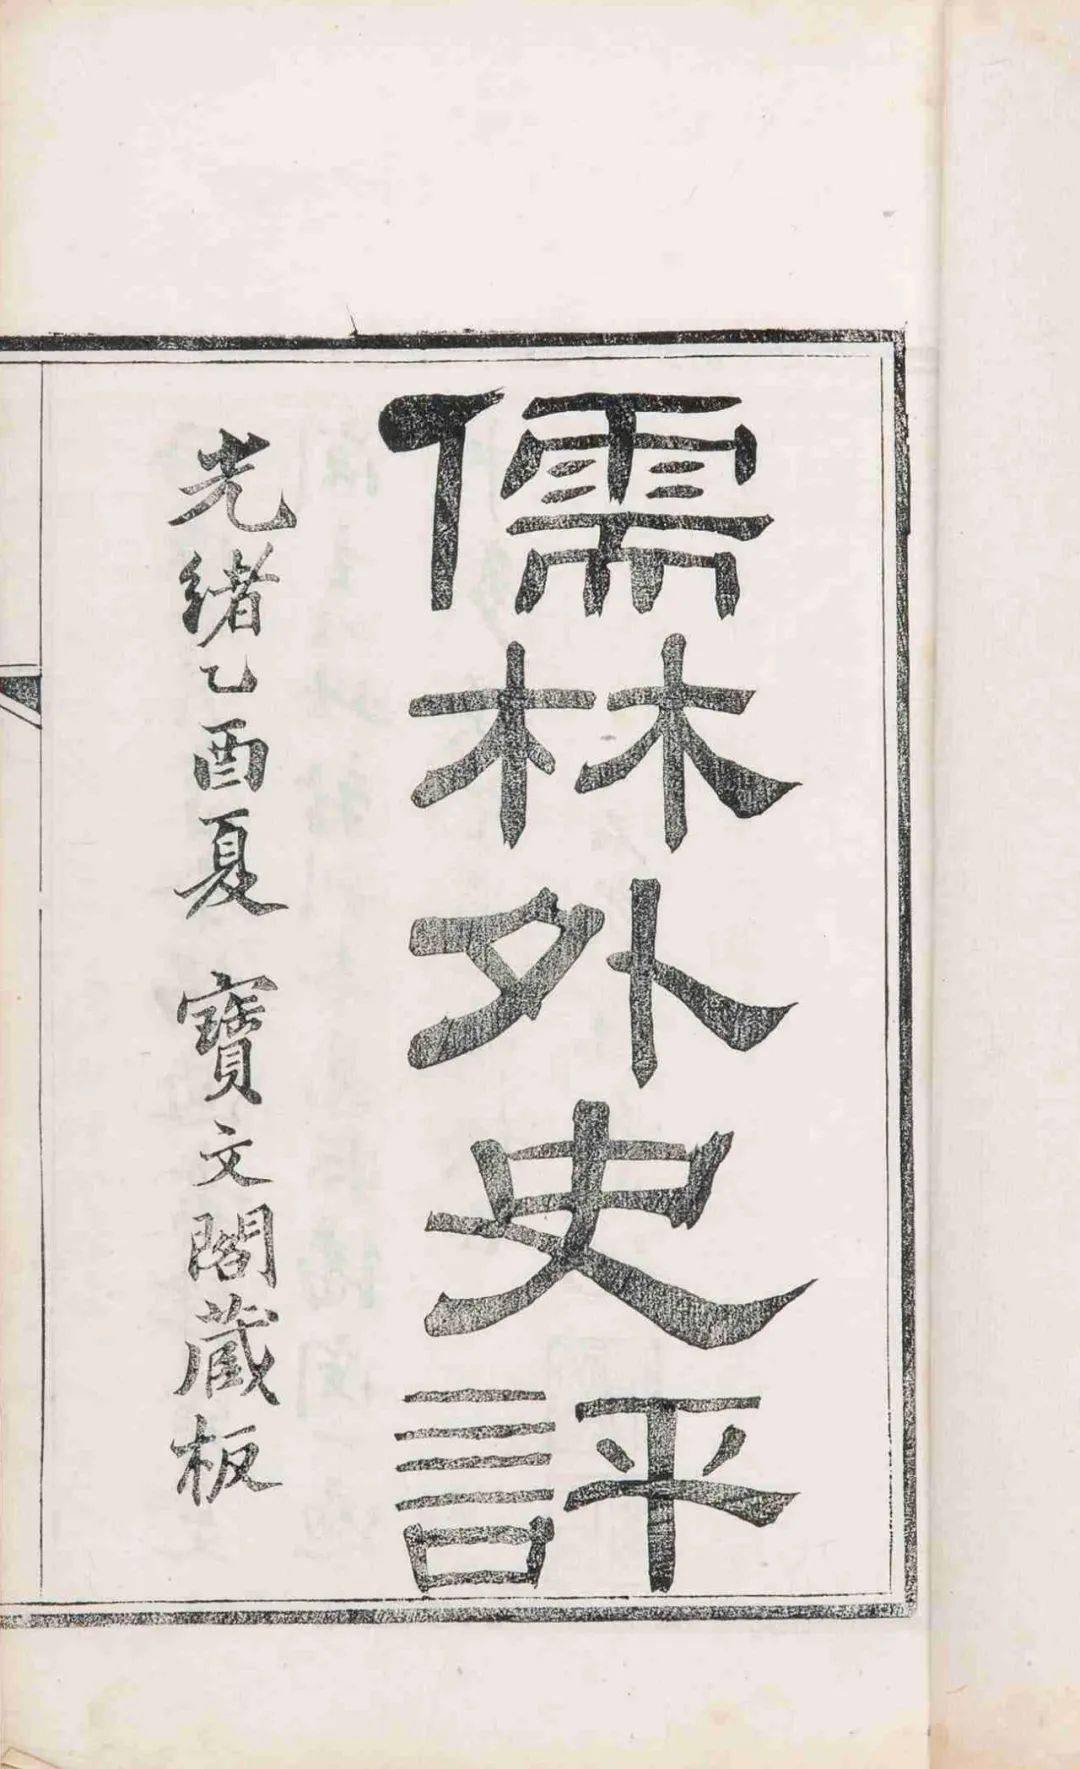 儒林外史評
光緒乙酉夏 寶文閣藏板